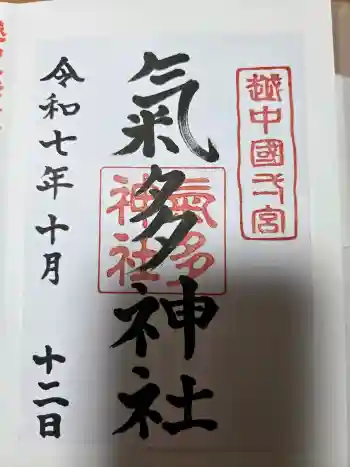 越中國弌宮
氣多神社
氣多
神社
令和七年十月 十二日